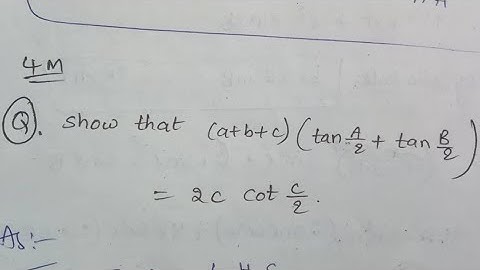 4M
Q. Show that (a+b+c) (tan A/2 + tan B/2)
= 2c cot C/2.
As:-